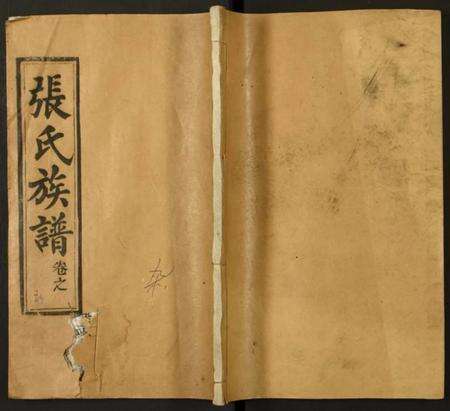 張氏族譜卷之